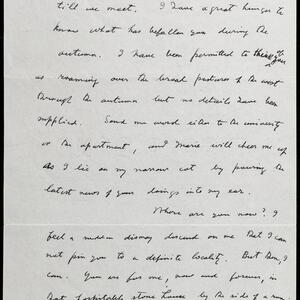 till we meet. I have a great hunger to
know what has befallen you during the
autumn. I have been permitted to think of you
as roaming over the broad pastures of the west
through the autumn but no details have been
supplied. Send me word either to the university
or the apartment, and Marie will cheer me up
as I lie on my narrow cot by pouring the
latest news of your doings into my ear.
Where are you now? I
feel a sudden dismay descend on me that I can
not pin you to a definite locality. But then, I
can. You are for me, now and forever, in
that hospitable stone house by the side of a